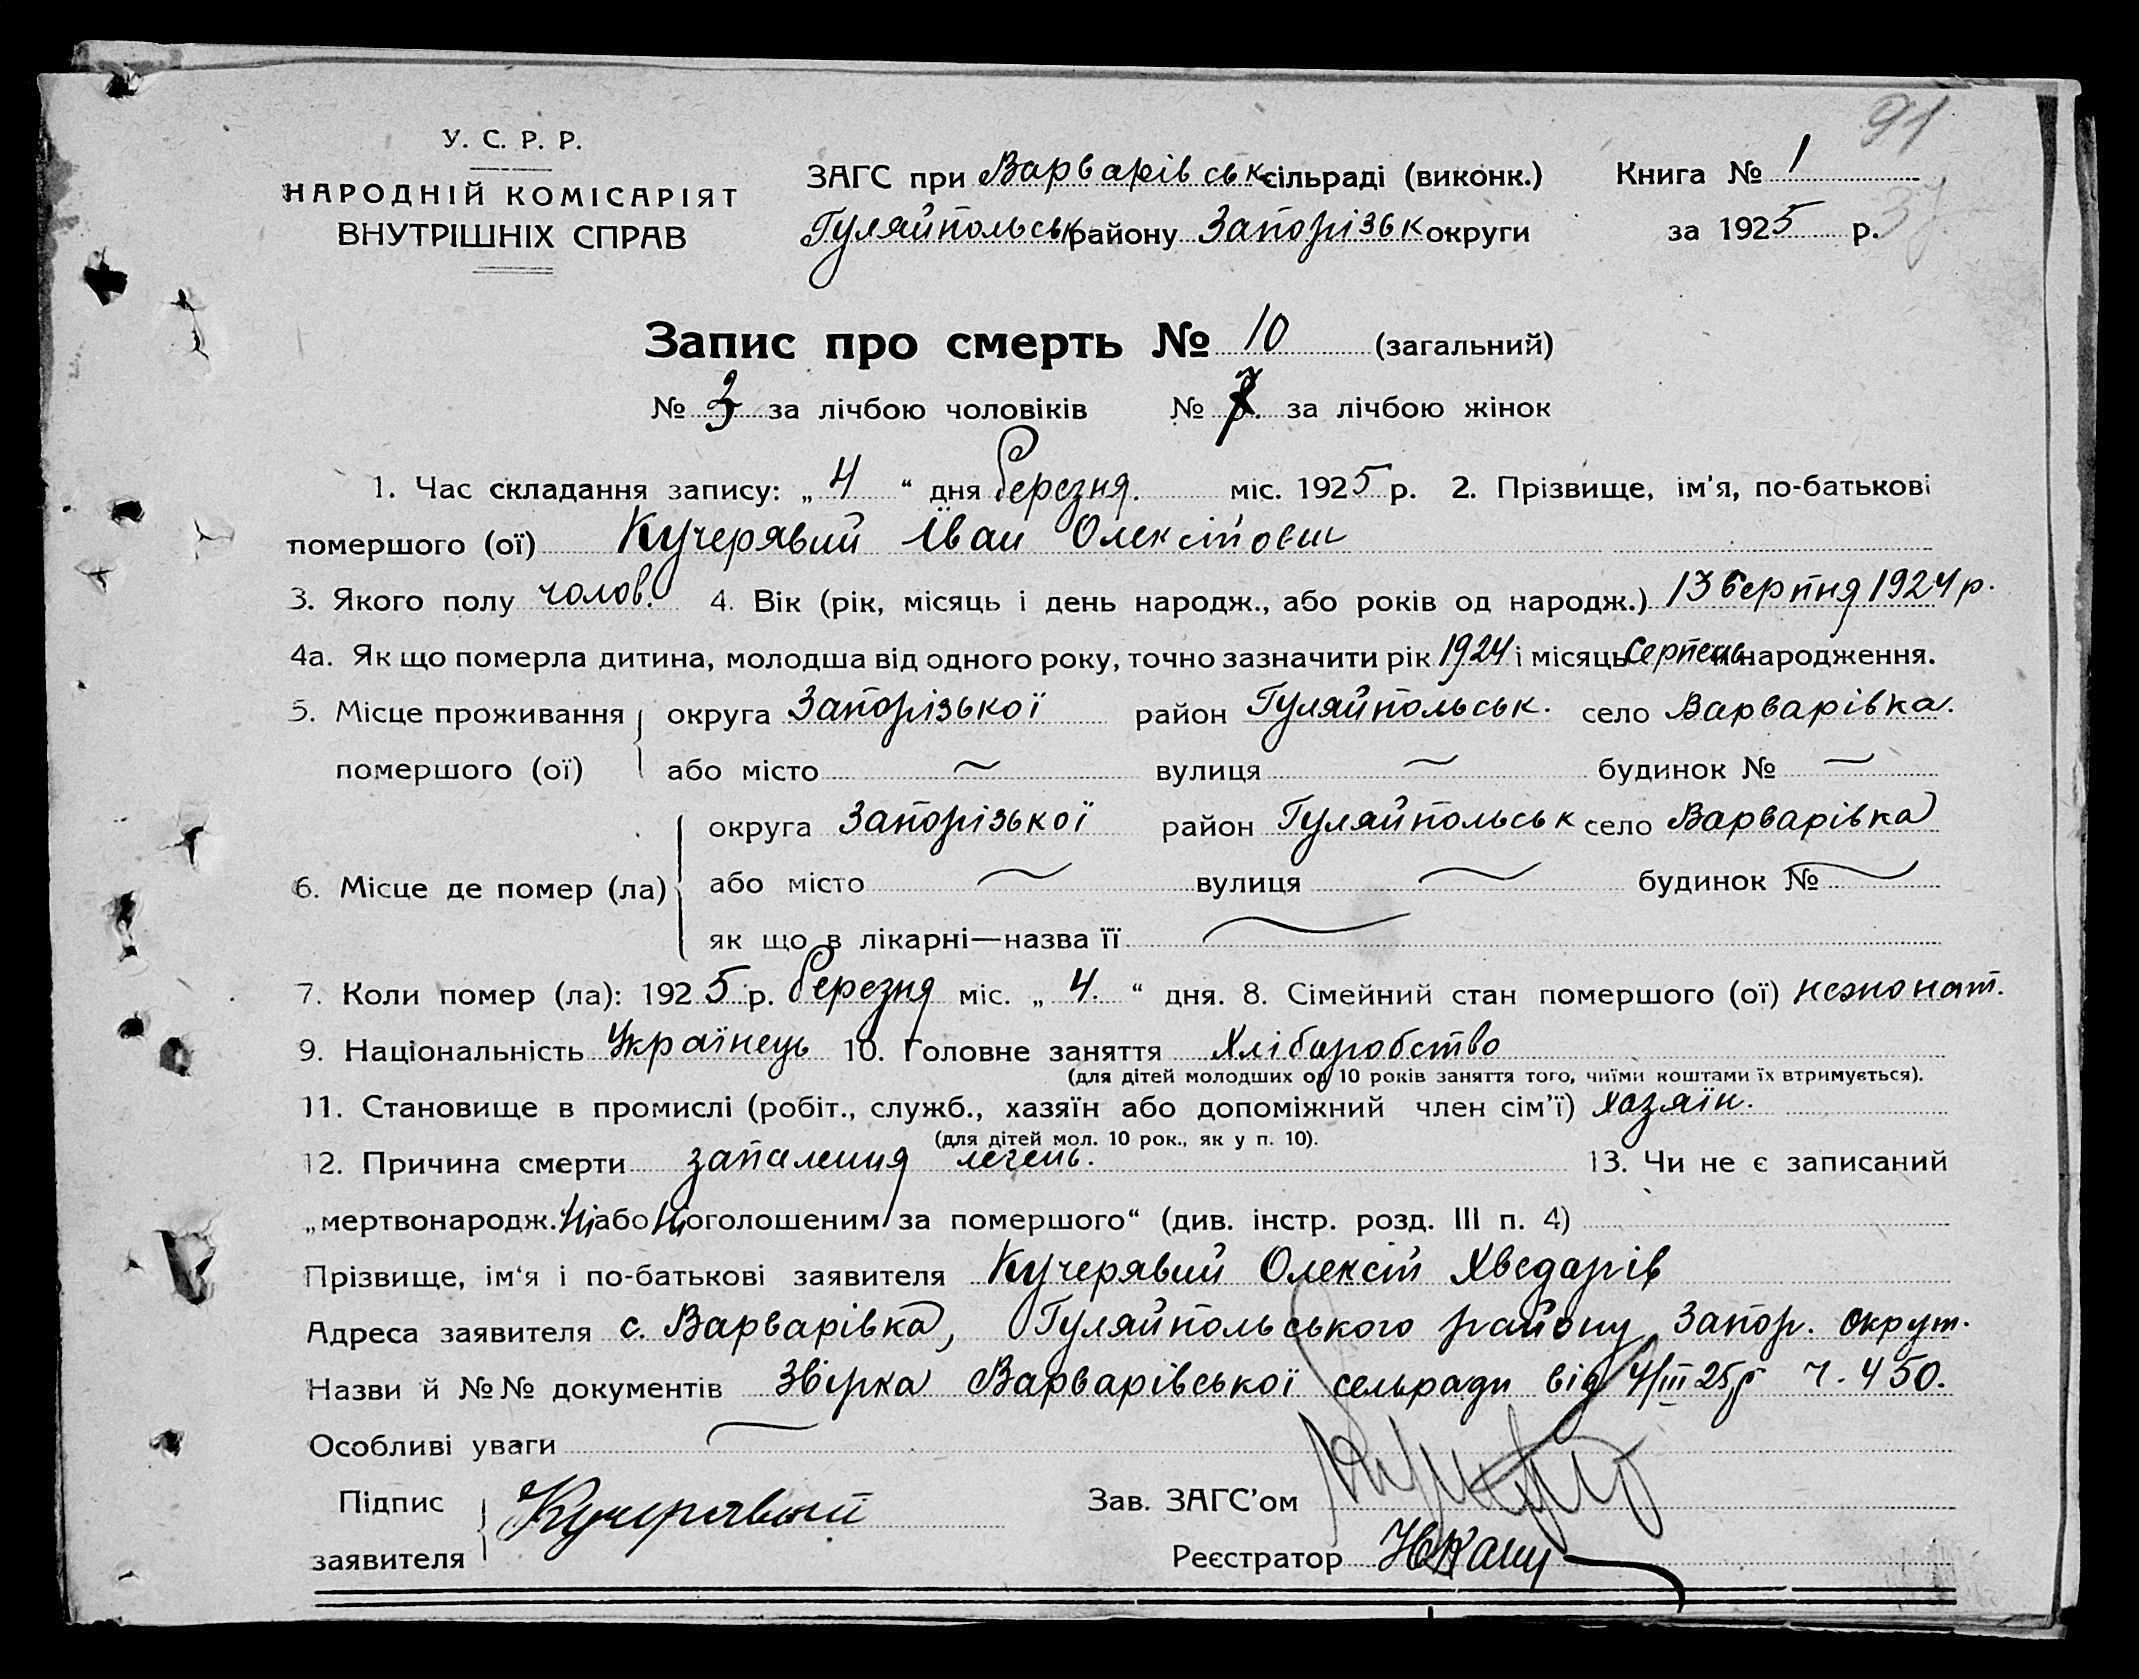 91
У. С. Р. Р.
НАРОДНІЙ КОМІСАРІЯТ
ВНУТРІШНІХ СПРАВ
ЗАГС при Варварівськ сільраді (виконк.) Книга № 1
Гуляйпольськ району Запорізьк округи за 1925 р.
37
Запис про смерть № 10 (загальний)
№ 3 за лічбою чоловіків № 7. за лічбою жінок
1. Час складання запису: „ 4 “ дня березня. міс. 1925 р. 2. Прізвище, ім'я, по-батькові
помершого (ої) Кучерявий Іван Олексійович
3. Якого полу чолов. 4. Вік (рік, місяць і день народж., або років од народж.) 13 серпня 1924 р.
4а. Як що померла дитина, молодша від одного року, точно зазначити рік 1924 і місяць Серпень народження.
5. Місце проживання округа Запорізької район Гуляйпольськ. село Варварівка.
помершого (ої) або місто ~ вулиця ~ будинок № ~
округа Запорізької район Гуляйпольськ село Варварівка
6. Місце де помер (ла) або місто ~ вулиця ~ будинок № ~
як що в лікарні—назва її ~
7. Коли помер (ла): 1925 р. березня міс. „ 4. “ дня. 8. Сімейний стан помершого (ої) нежонат.
9. Національність Українець 10. Головне заняття Хлібаробство
(для дітей молодших од 10 років заняття того, чиїми коштами їх втримується).
11. Становище в промислі (робіт., служб., хазяїн або допоміжний член сім'ї) хазяїн.
(для дітей мол. 10 рок., як у п. 10).
12. Причина смерти запалення легень. 13. Чи не є записаний
„мертвонародж. Ні або Ні оголошеним за помершого“ (див. інстр. розд. III п. 4)
Прізвище, ім'я і по-батькові заявителя Кучерявий Олексій Хведарів
Адреса заявителя с. Варварівка, Гуляйпольського району Запор. округ.
Назви й №№ документів Звірка Варварівської сельради від 4/III 25 р ч. 450.
Особливі уваги ~
Підпис
заявителя Кучерявый
Зав. ЗАГС'ом
Реєстратор